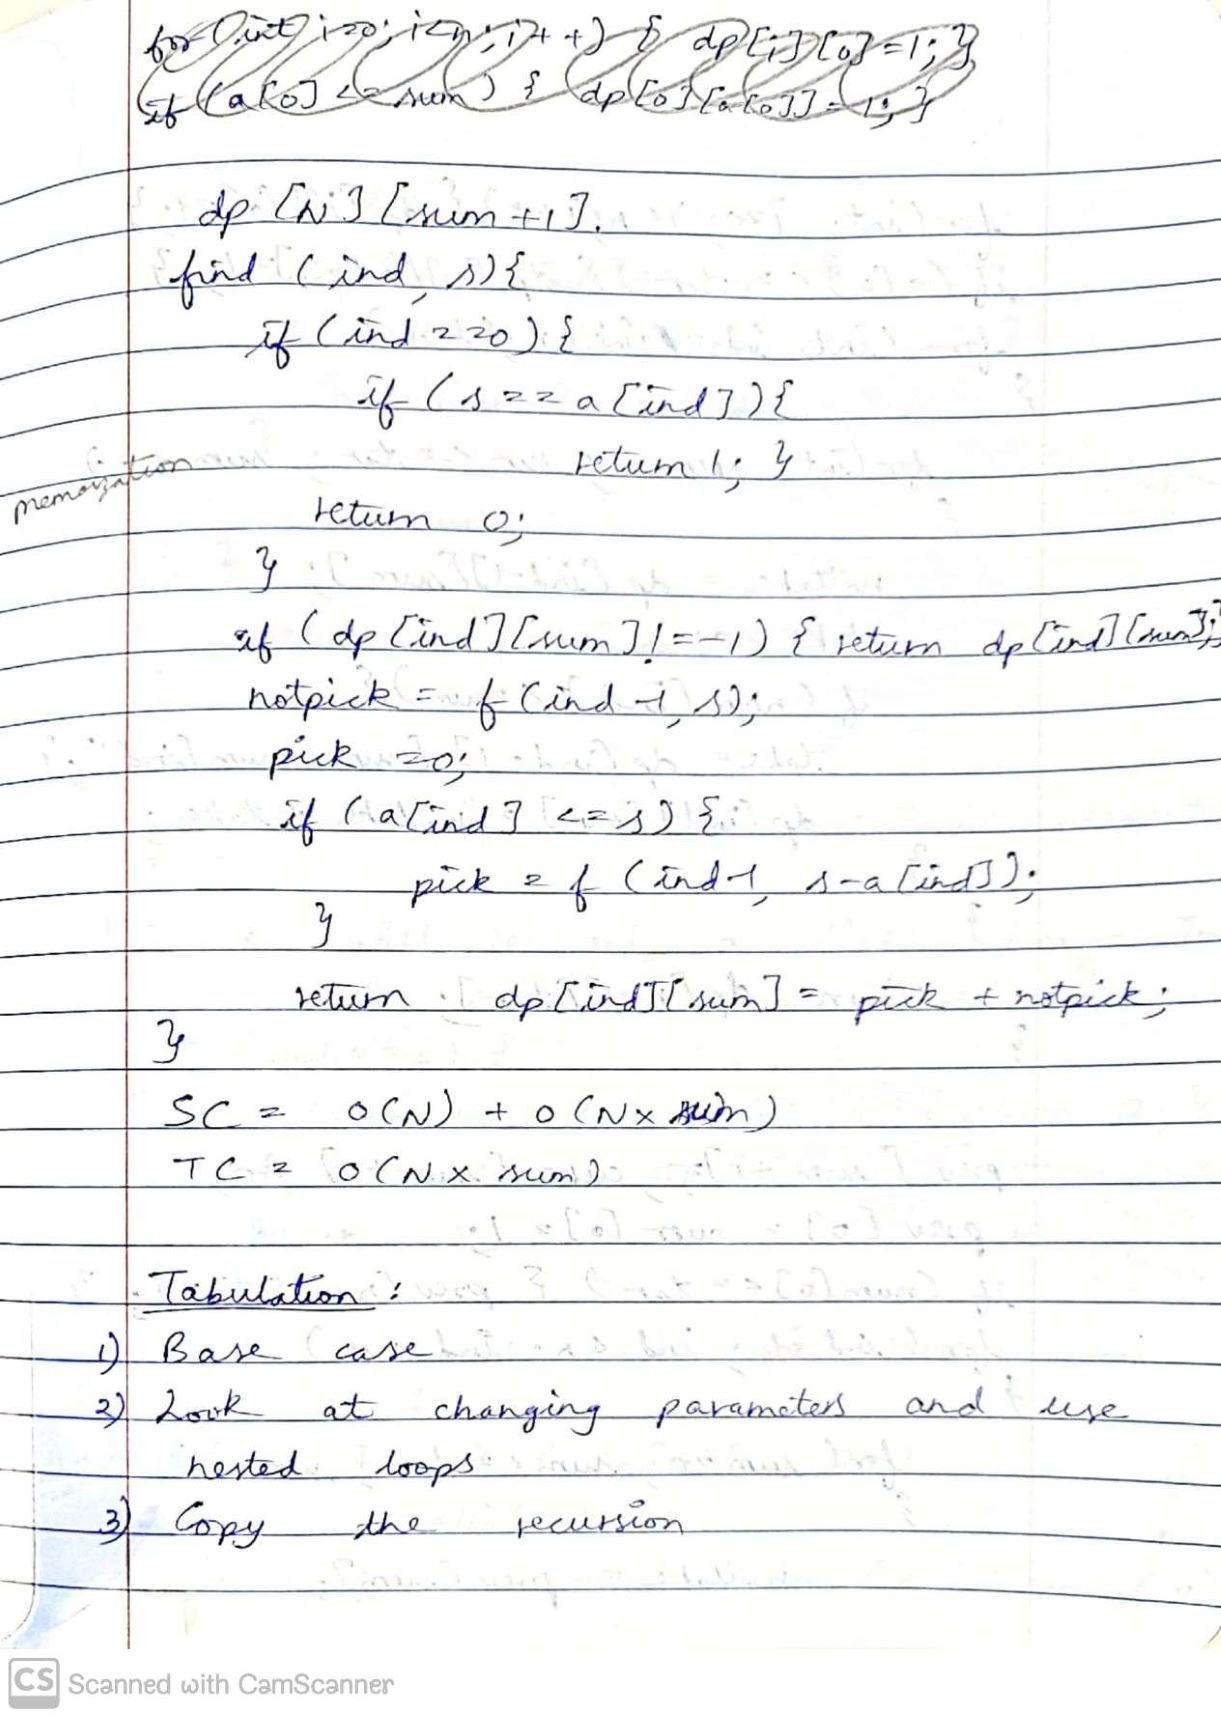 for (int i=0; i<n; i++) { dp[i][0]=1; }
if (a[0] <= sum) { dp[0][a[0]] = 1; }
dp [N] [sum+1].
find (ind, s){
if (ind ==0) {
if (s == a[ind]){
memoization
return 1; }
return 0;
}
if (dp[ind][sum] != -1) { return dp[ind][sum]; }
notpick = f(ind-1, s);
pick =0;
if (a[ind] <= s) {
pick = f (ind-1, s-a[ind]);
}
return dp[ind][sum] = pick + notpick;
}
SC = O(N) + O(N x sum)
TC = O(N x sum)
Tabulation :
1) Base case
2) Look at changing parameters and use
nested loops
3) Copy the recursion
CS Scanned with CamScanner